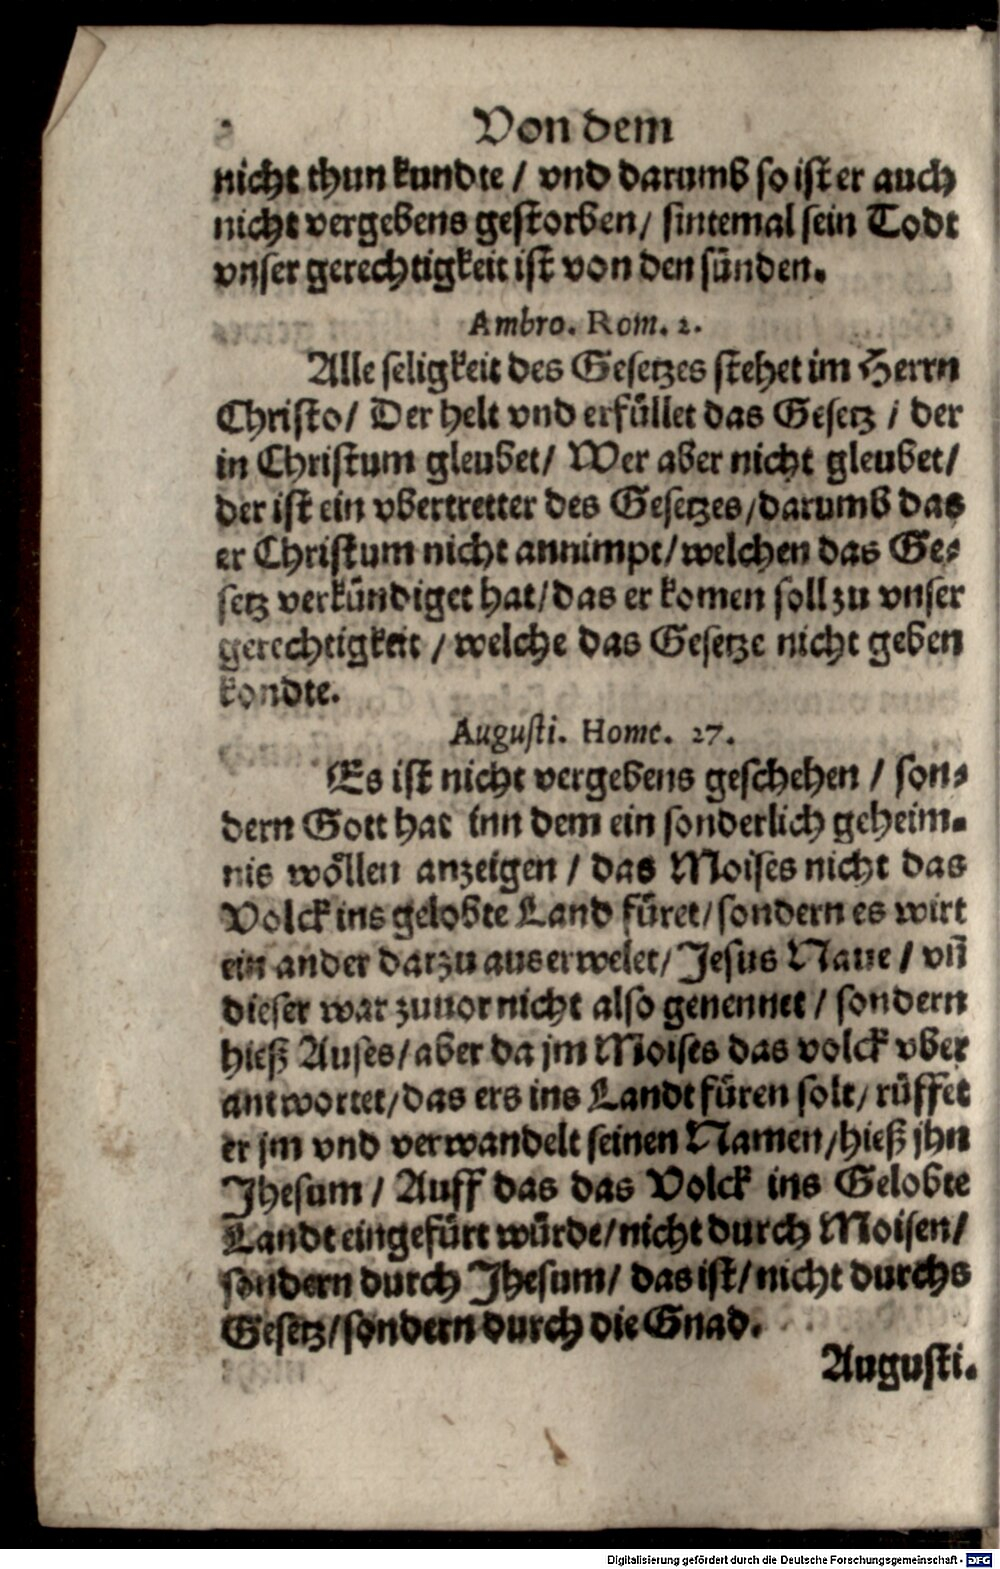 Von dem
nicht thun kundte / vnd darumb so ist er auch
nicht vergebens gestorben / sintemal sein Todt
vnser gerechtigkeit ist von den sünden.
Ambro. Rom. 2.
Alle seligkeit des Gesetzes stehet im Herrn
Christo / Der helt vnd erfüllet das Gesetz / der
in Christum gleubet / Wer aber nicht gleubet /
der ist ein vbertretter des Gesetzes / darumb das
er Christum nicht annimpt / welchen das Ge⸗
setz verkündiget hat / das er komen soll zu vnser
gerechtigkeit / welche das Gesetze nicht geben
kondte.
Augusti. Home. 27.
Es ist nicht vergebens geschehen / son⸗
dern Gott hat inn dem ein sonderlich geheim⸗
nis wöllen anzeigen / das Moises nicht das
Volck ins gelobte Land füret / sondern es wirt
ein ander darzu auserwelet / Jesus Naue / vñ
dieser war zuuor nicht also genennet / sondern
hieß Auses / aber da jm Moises das volck vber
antwortet / das ers ins Landt füren solt / rüffet
er jm vnd verwandelt seinen Namen / hieß jhn
Jhesum / Auff das das Volck ins Gelobte
Landt eingefürt würde / nicht durch Moisen /
sondern durch Jhesum / das ist / nicht durchs
Gesetz / sondern durch die Gnad.
Augusti.
Digitalisierung gefördert durch die Deutsche Forschungsgemeinschaft - DFG